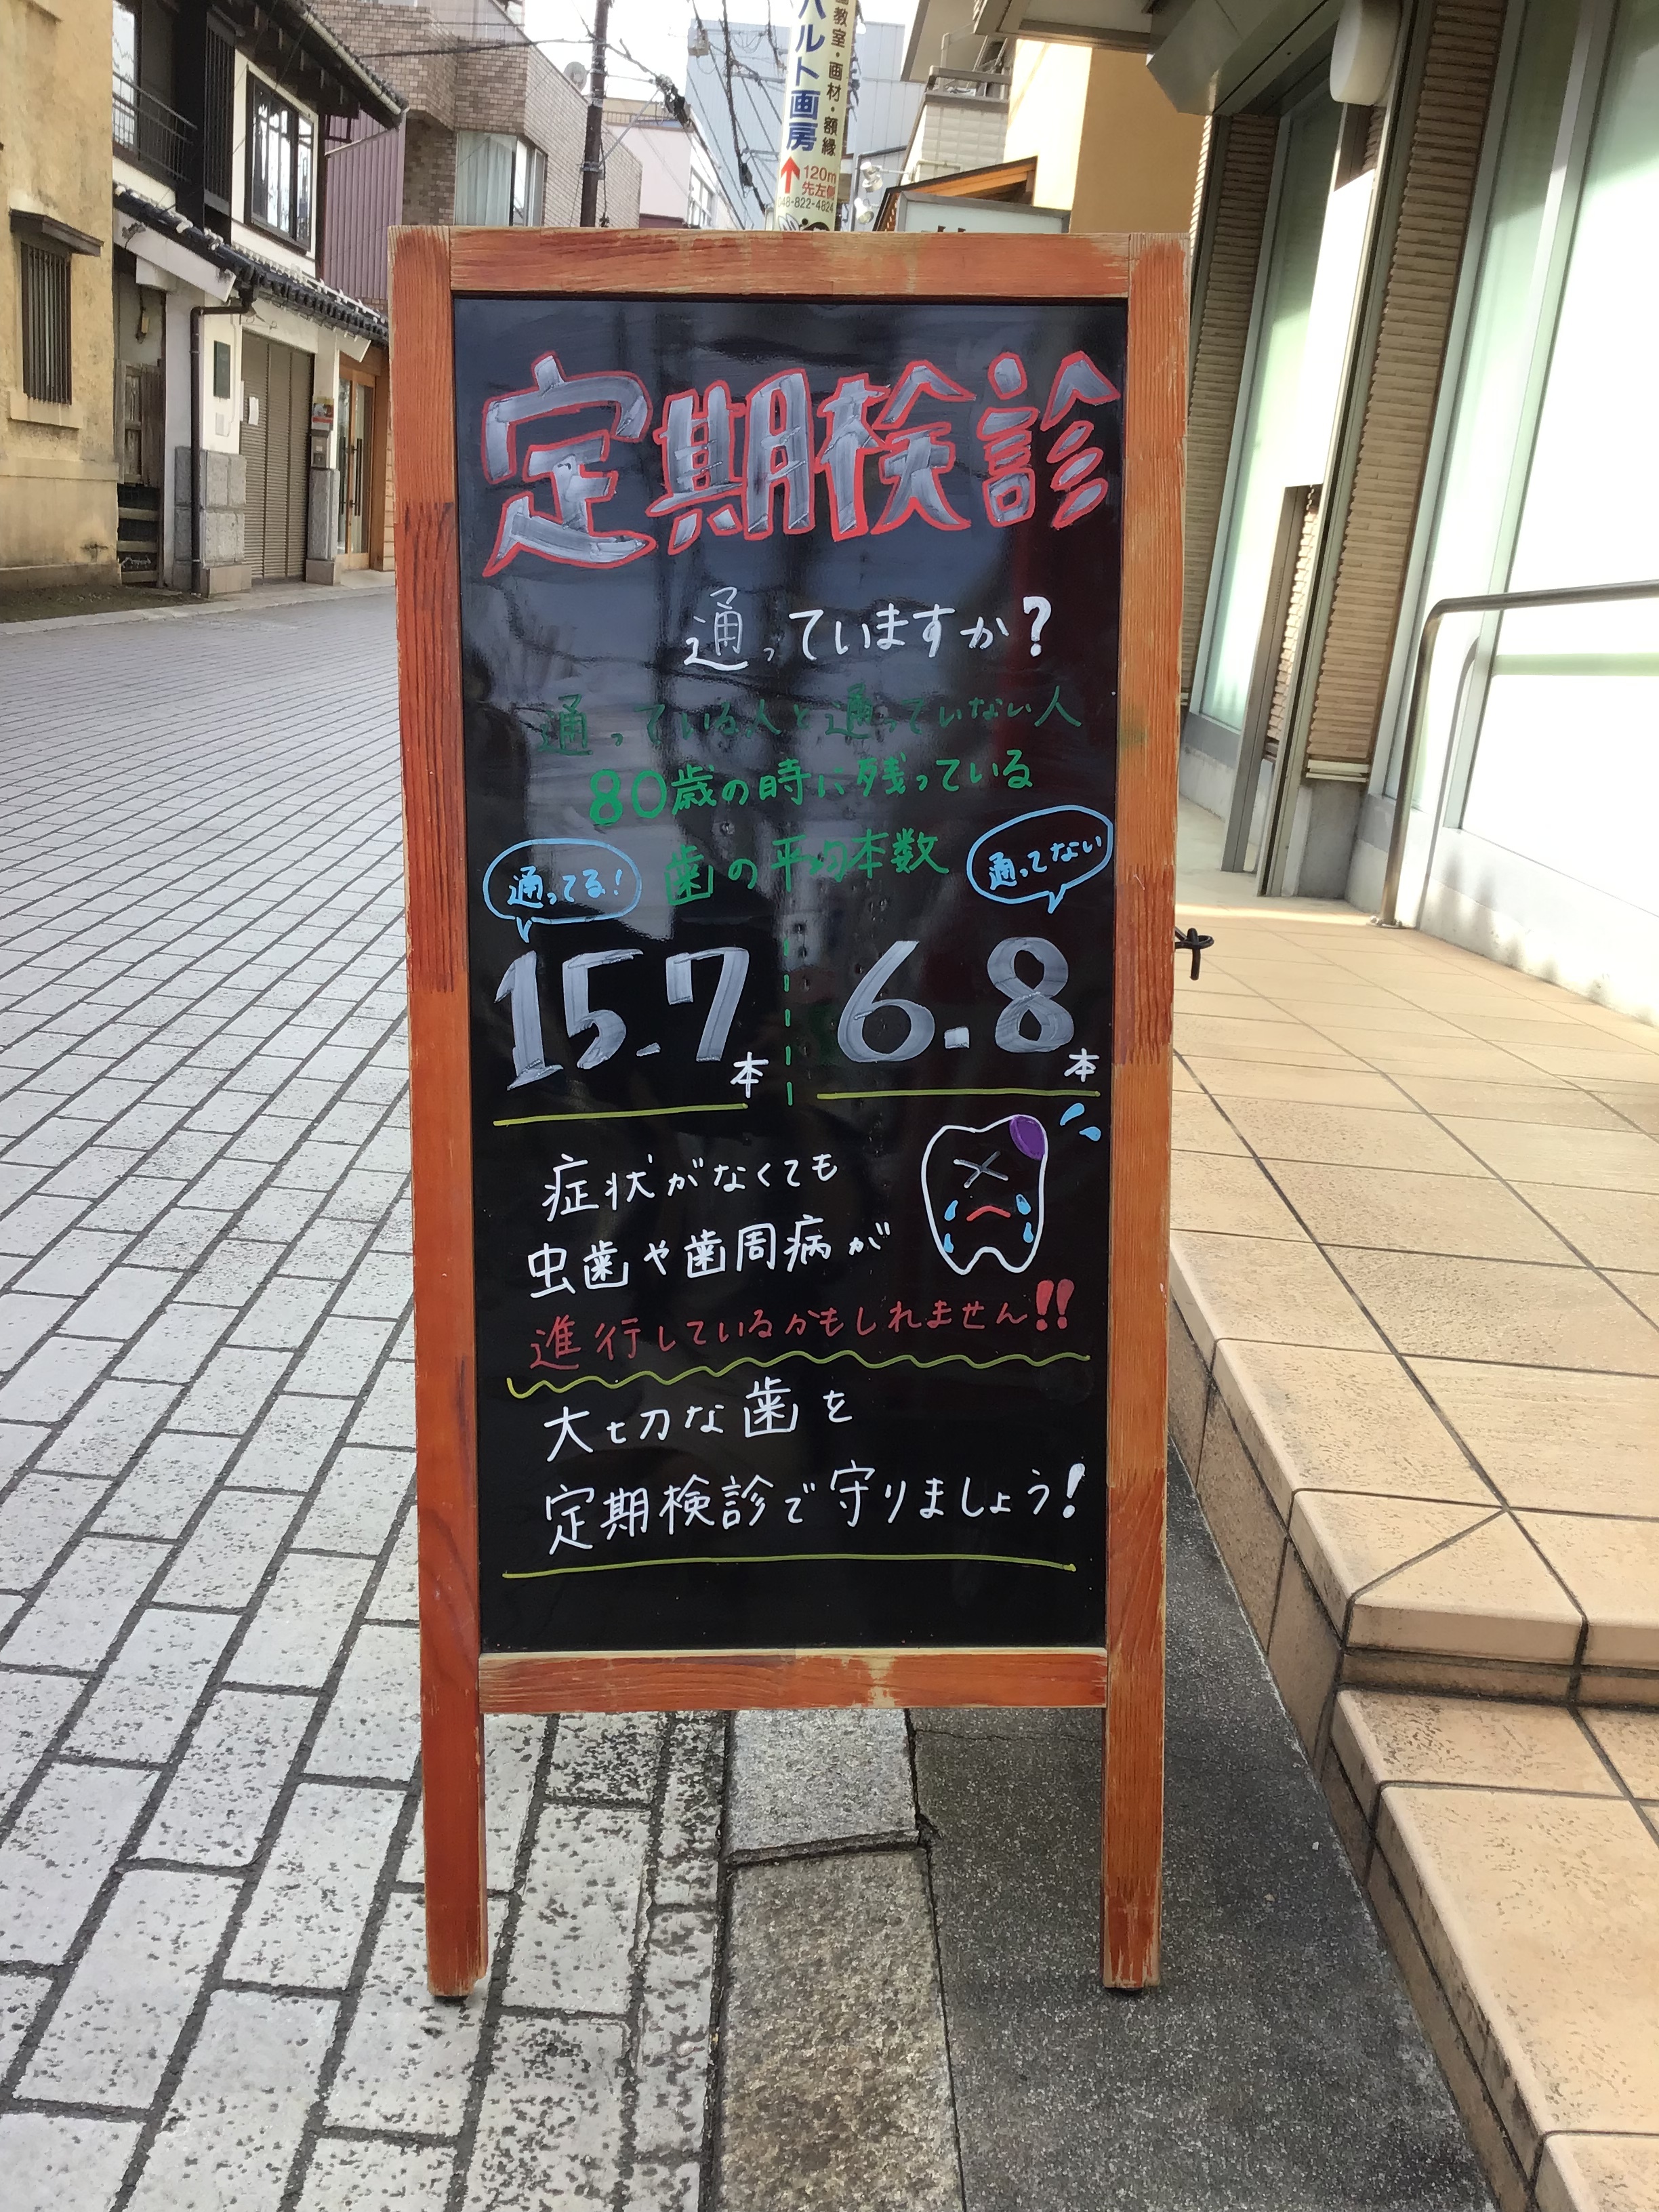 ハルト画房
教室・画材・額縁
120m
先左側
048-822-4824
定期検診
通っていますか?
通っている人と通っていない人
80歳の時に残っている
歯の平均本数
通ってる!
通ってない
15.7本
6.8本
症状がなくても
虫歯や歯周病が
進行しているかもしれません!!
大切な歯を
定期検診で守りましょう!